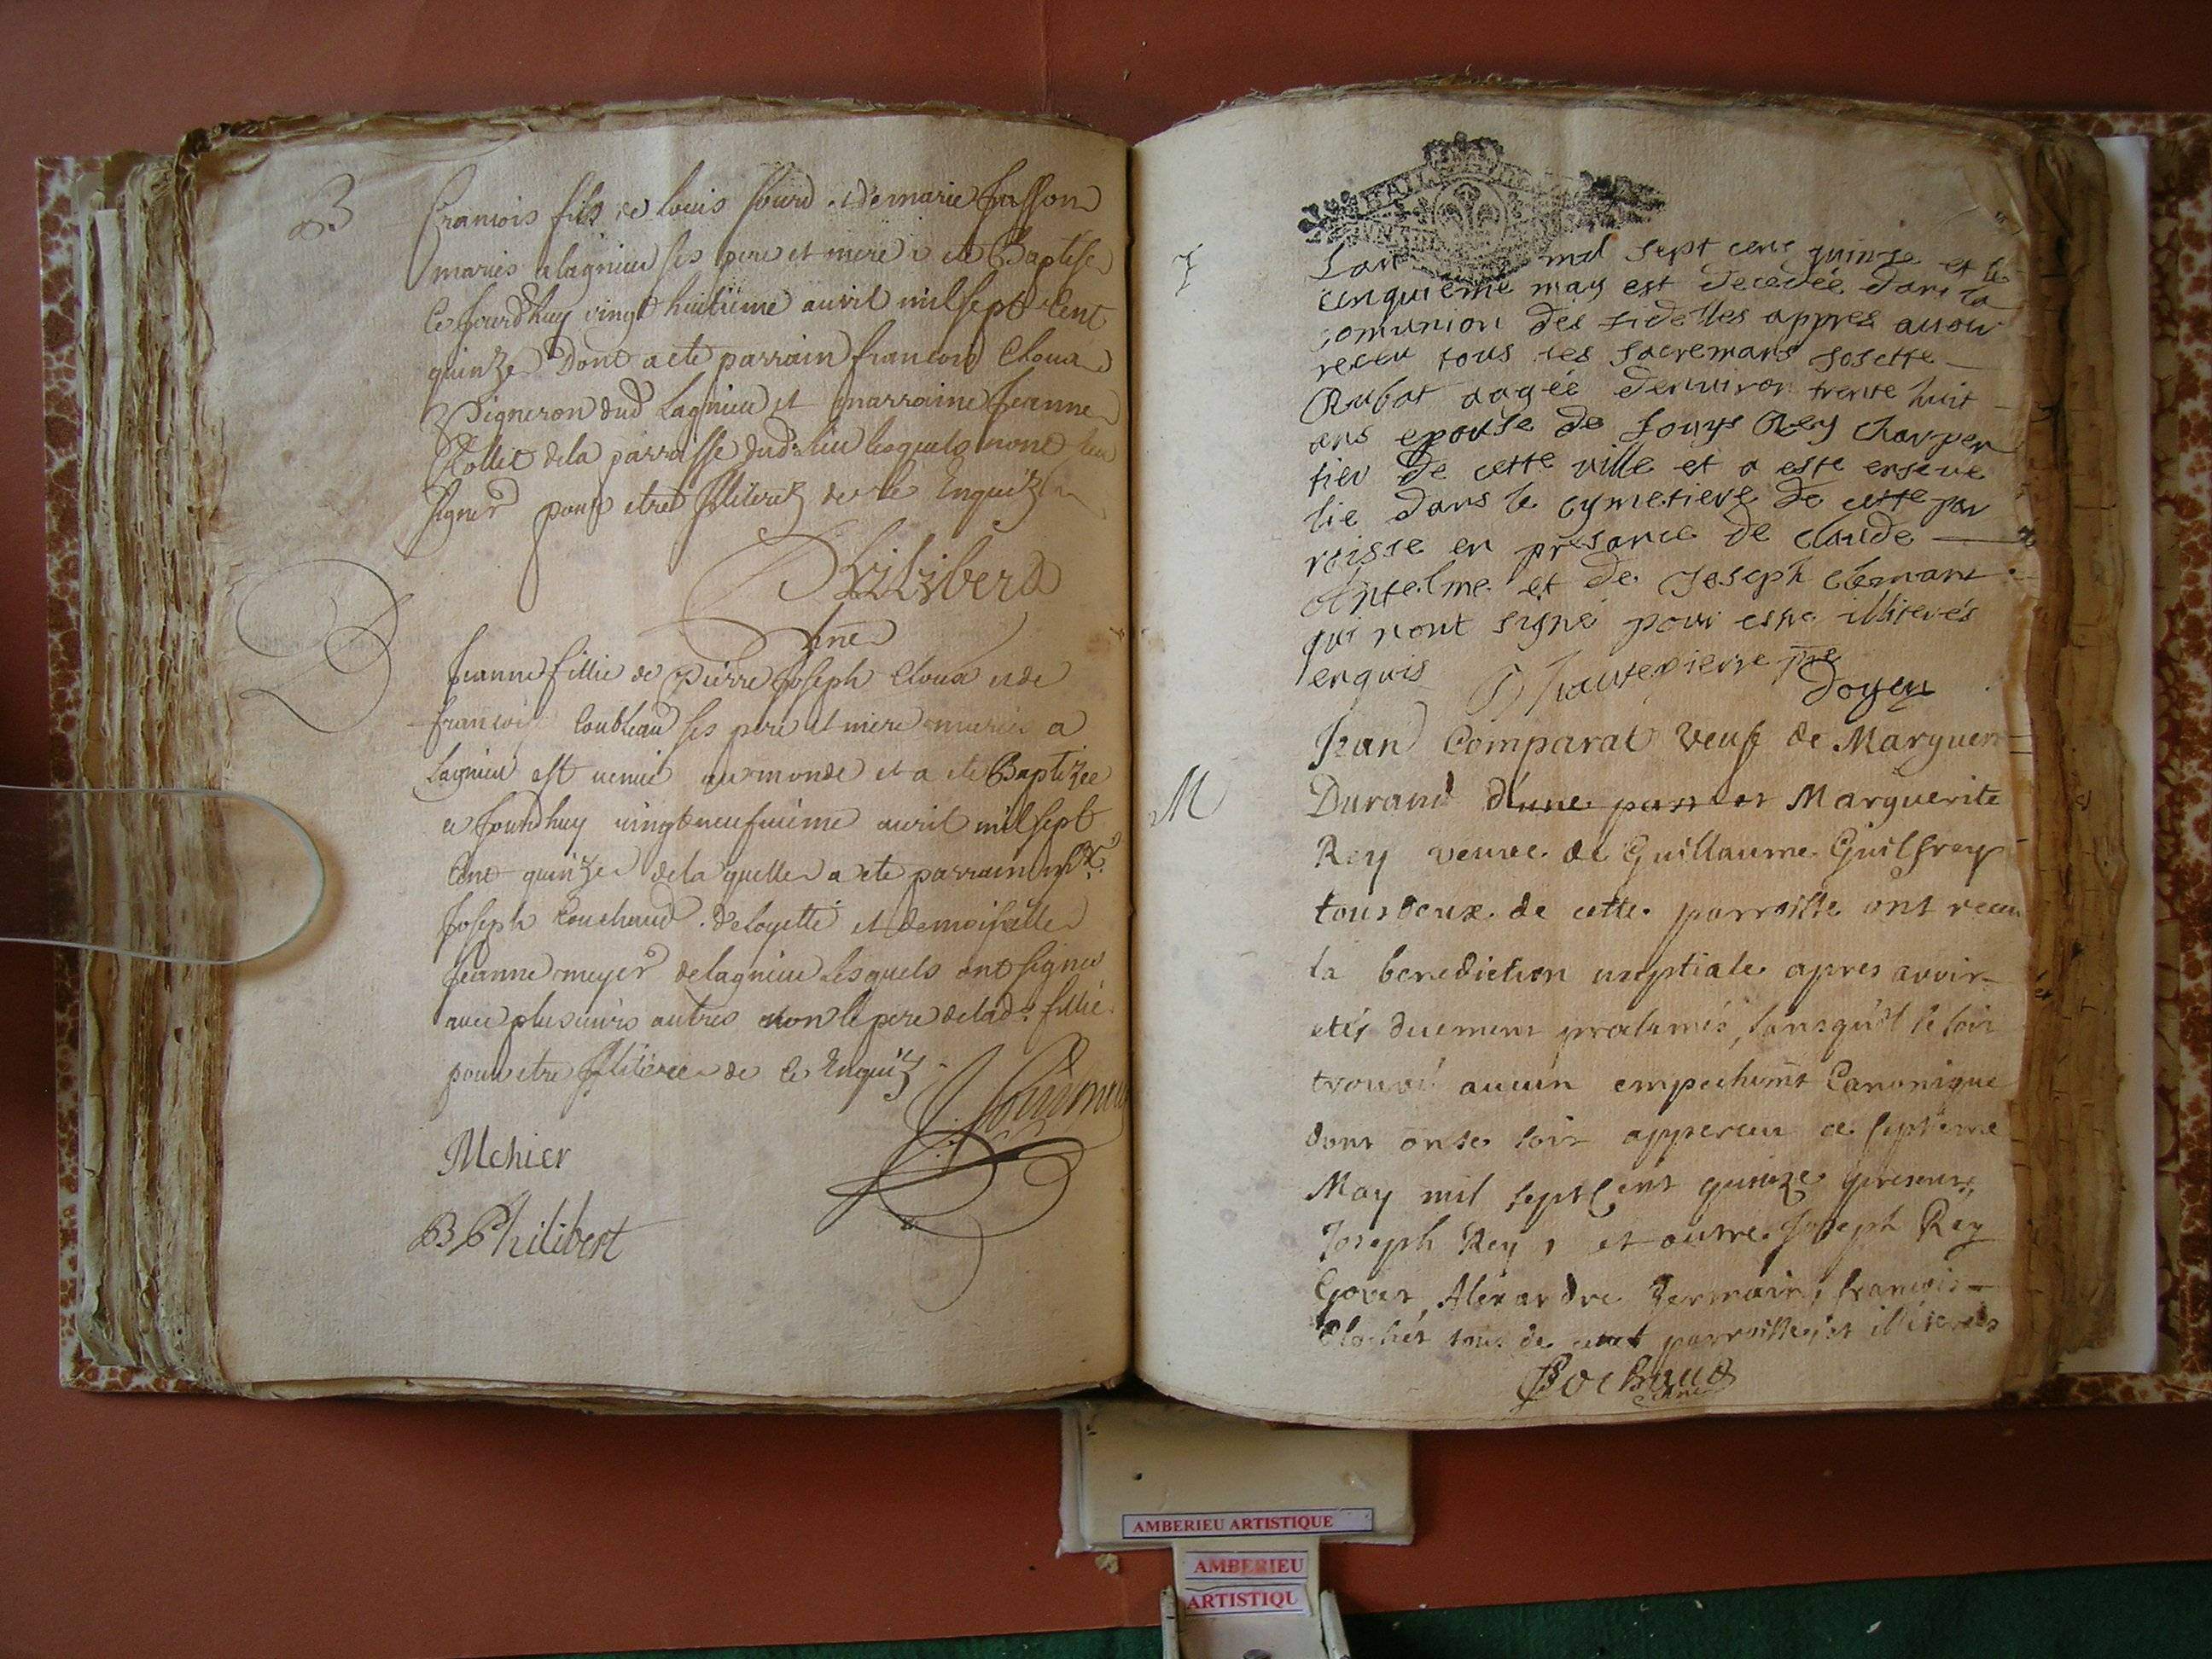 B
francois fils de louis sourd et de marie
maries a lagnieu ses pere et mere a ete Baptise
ce jourdhuy vingt huitieme auril mil sept Cent
quinze Dont a ete parrain francois Cloua
Vigneron dud Lagnieu et marraine Jeanne
Rollet de la parroisse dud lieu lesquels nont sceu
signer pour etres Illiterez de ce Enquiz
Philibert
B
Jeanne fillie de Pierre Joseph Cloua et de
francoise ses pere et mere maries a
Lagnieu est venue au monde et a ete Baptizee
ce jourdhuy vingt neufuieme auril mil sept
Cent quinze de la quelle a ete parrain
Joseph Couchaud de loyette et demoiselle
Jeanne meyer de lagnieu Lesquels ont signes
auec plusieurs autres non le pere de lad. fillie
pour etre Illiteree de ce Enquiz
Mehier
B Philibert
Lan mil sept cens quinze et le
cinquieme may est decedée dans la
comunion des fidelles appres auoir
receu tous les sacremans Josette
Rubat aagée denuiron trente huit
ans epouse de Louys Rey charpen
tier de cette ville et a este enseue
lie dans le cymetiere de cette par
roisse en presance de claude
Antelme et de Joseph clemant
qui nont signé pour estre illiterés
enquis Hautepierre pre
Doyen
M
Jean Comparat veuf de Marguerite
Durand d'une part et Marguerite
Rey veuve de Guillaume Guilfrey
tous deux de cette parroisse ont receu
la benediction nuptiale apres avoir
etés duement proclamés, sans qu'il se soit
trouvé aucun empechemt Canonique
dont on se soit apperceu ce septieme
May mil sept Cent quinze presents
Joseph Rey, et autre Joseph Rey
Goyet, Alexandre Germain, francois
tous de cette parroisse et illiterés
Bochaud
AMBERIEU ARTISTIQUE
AMBERIEU
ARTISTIQU